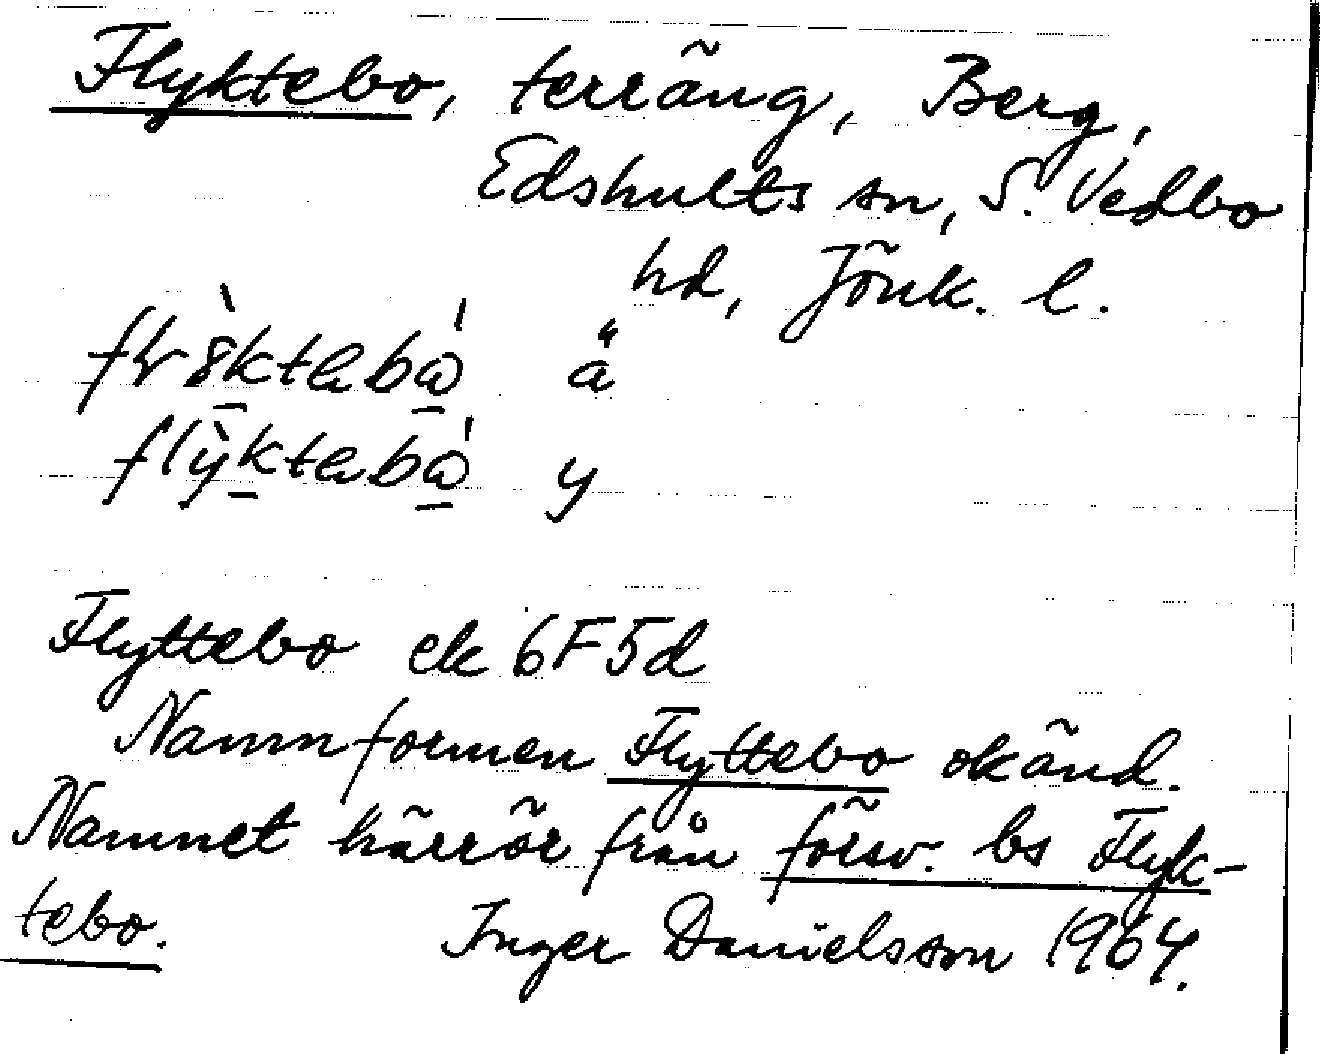 Flyktebo, terräng, Berg,
Edshults sn, S. Vedbo
hd, Jönk. l.
ä
flỳktebå y
Flyttebo ek 6F5d
Namnformen Flyttebo okänd.
Namnet härrör från försv. bs Flyk-
tebo. Inger Danielsson 1964.